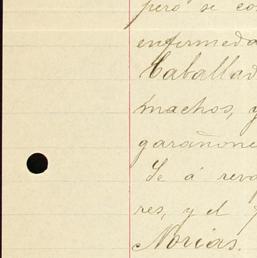 pero se co
enfermeda
Caballad
machos, y
garañone
Se á rev
res, y el
Norias.